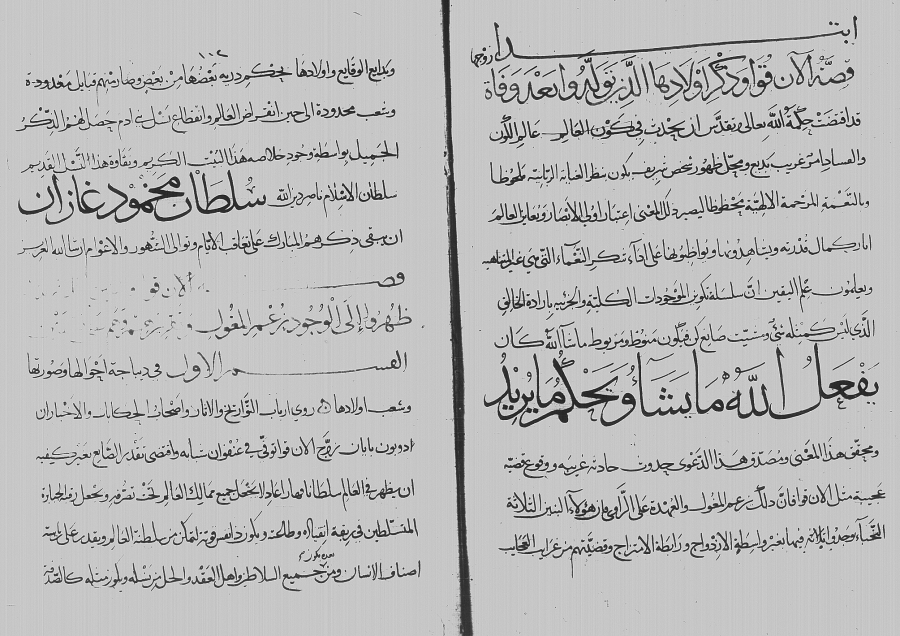 ابتدا
قصّة آلان قوا وذكر اولادها الذين تولّدوا بعد وفاة زوجها
قد اقتضت حكمة الله تعالى وتقدّس ان يحدث في كون العالم عالم الكون
والفساد امر غريب بديع ومحل ظهور شخص شريف يكون بنظر العناية الربانية ملحوظا
وبالنعمة المرحمة الالهيّة محظوظا ليصير ذلك المعنى اعتبار اولى الابصار ويعاين العالم
اثار كمال قدرته ويشاهدونها ويواظبونها على اداء شكر النعماء التي هي غير المتناهية
ويعلمون علم اليقين انّ سلسلة تكوين الموجودات الكلية والجزئية بارادة الخالق
الذي ليس كمثله شئ ومشيّت صانع كن فيكون منوط ومربوط ما شاء الله كان
يفعل الله ما يشاء ويحكم ما يريد
ومحقّق هذا المعنى ومصدّق هذا الدّعوى حدوث حادثة غريبة ووقوع قصّة
عجيبة مثل آلان قوا فانّ ذلك بزعم المغول والعهدة على الرّاوي وان هؤلاء البنين الثلاثة
النجباء وجدوا بلا فيها بغير واسطة الازدواج ورابطة الامتزاج وقصّتهم من غرايب العجايب
١١٢
وبدايع الوقايع واولادها بحكم ذرية بعضها من بعض وصار منهم قبايل معدودة
وشعب محدودة الى حين انقراض العالم وانقطاع نسل بني ادم حصل لهم الذكر
الجميل بواسطة وجود خلاصه هذا البيت الكريم ونقاوة هذا النسل القديم
سلطان الاسلام ناصر دين الله سلطان محمود غازان
ان يبقى ذكرهم المبارك على تعاقب الايام وتوالى الشهور والاعوام ان شاء الله العزيز
قصة آلان قوا
ظهروا إلى الوجود بزعم المغول
القسم الاول في ديباجة احوالها وصورتها
وشعب اولادها روى ارباب التواريخ والاثار واصحاب الحكايات والاخبار
ان دوبون بايان زوج آلان قوا توفّي في عنفوان شبابه واقتضى تقدير الصّانع بغير كيفيه
ان يظهر في العالم سلطانا قهارا عادلا يجعل جميع ممالك العالم تحت تصرّفه ويجعل رقاب الجبابرة
المتسلطين في ربقة انقياده وطاعته ويكون ذا نفس قوية ليتمكن من سلطنة العالم ويقدر على تربية
اصناف الانسان ومن جميع السلاطين واهل العقد والحل من نسله ويكون مثله كالصدفة